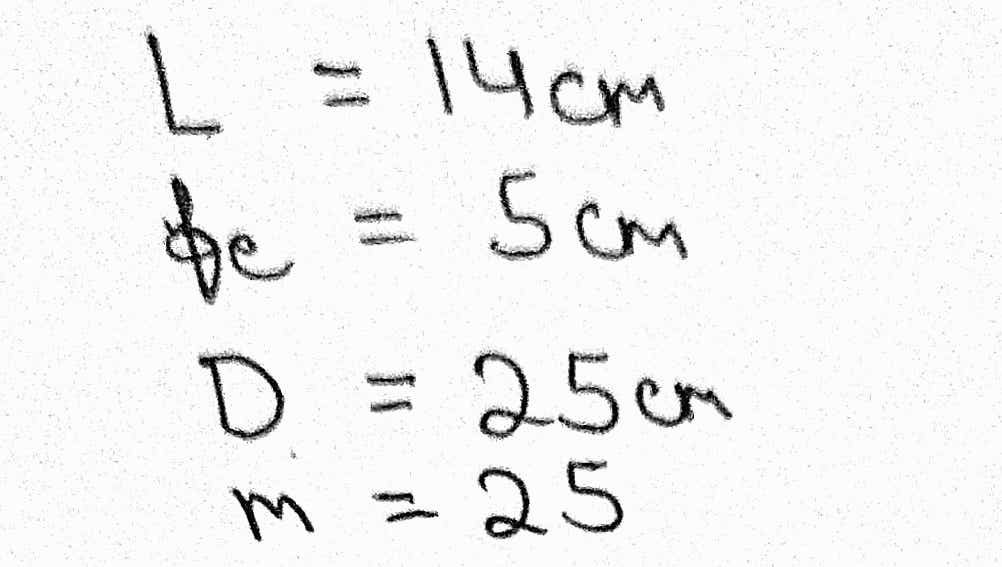 L = 14cm
fe = 5cm
D = 25cm
m = 25